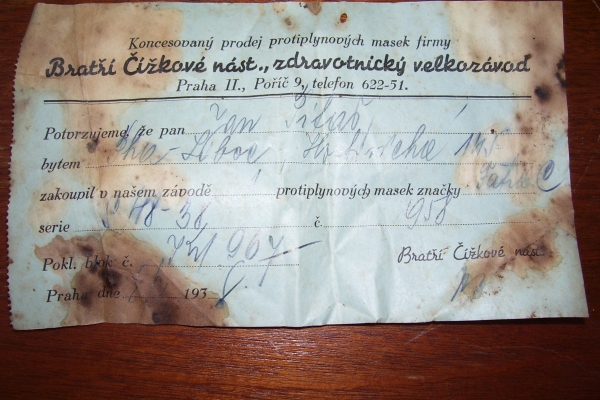 Koncesovaný prodej protiplynových masek firmy
Bratří Čížkové nást., zdravotnický velkozávod
Praha II., Poříč 9, telefon 622-51.
Potvrzujeme, že pan Jan
bytem Pha-Liboc, 145
zakoupil v našem závodě 1 protiplynových masek značky Fatra C
serie 48-38 č. 958
Pokl. blok č.
Bratří Čížkové nást.
Praha dne 193